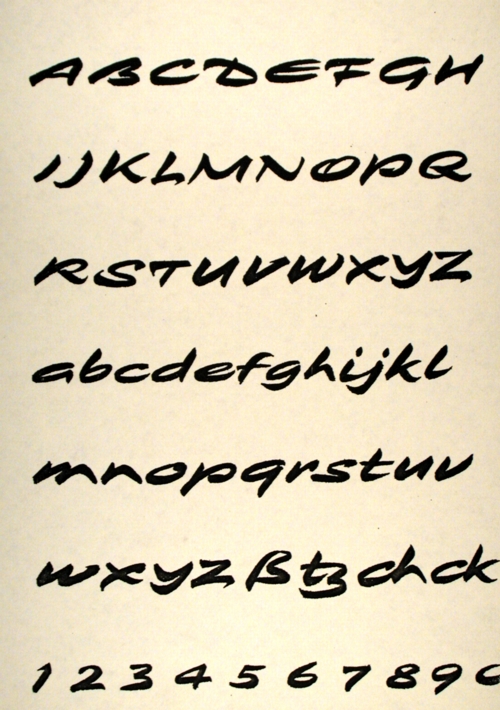 ABCDEFGH
IJKLMNOPQ
RSTUVWXYZ
abcdefghijkl
mnopqrstuv
wxyzßtzchck
1 2 3 4 5 6 7 8 9 0